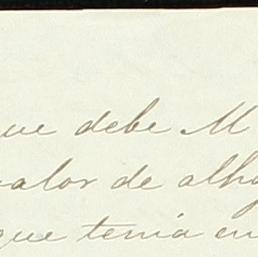 que debe M
valor de alha
que tenia en